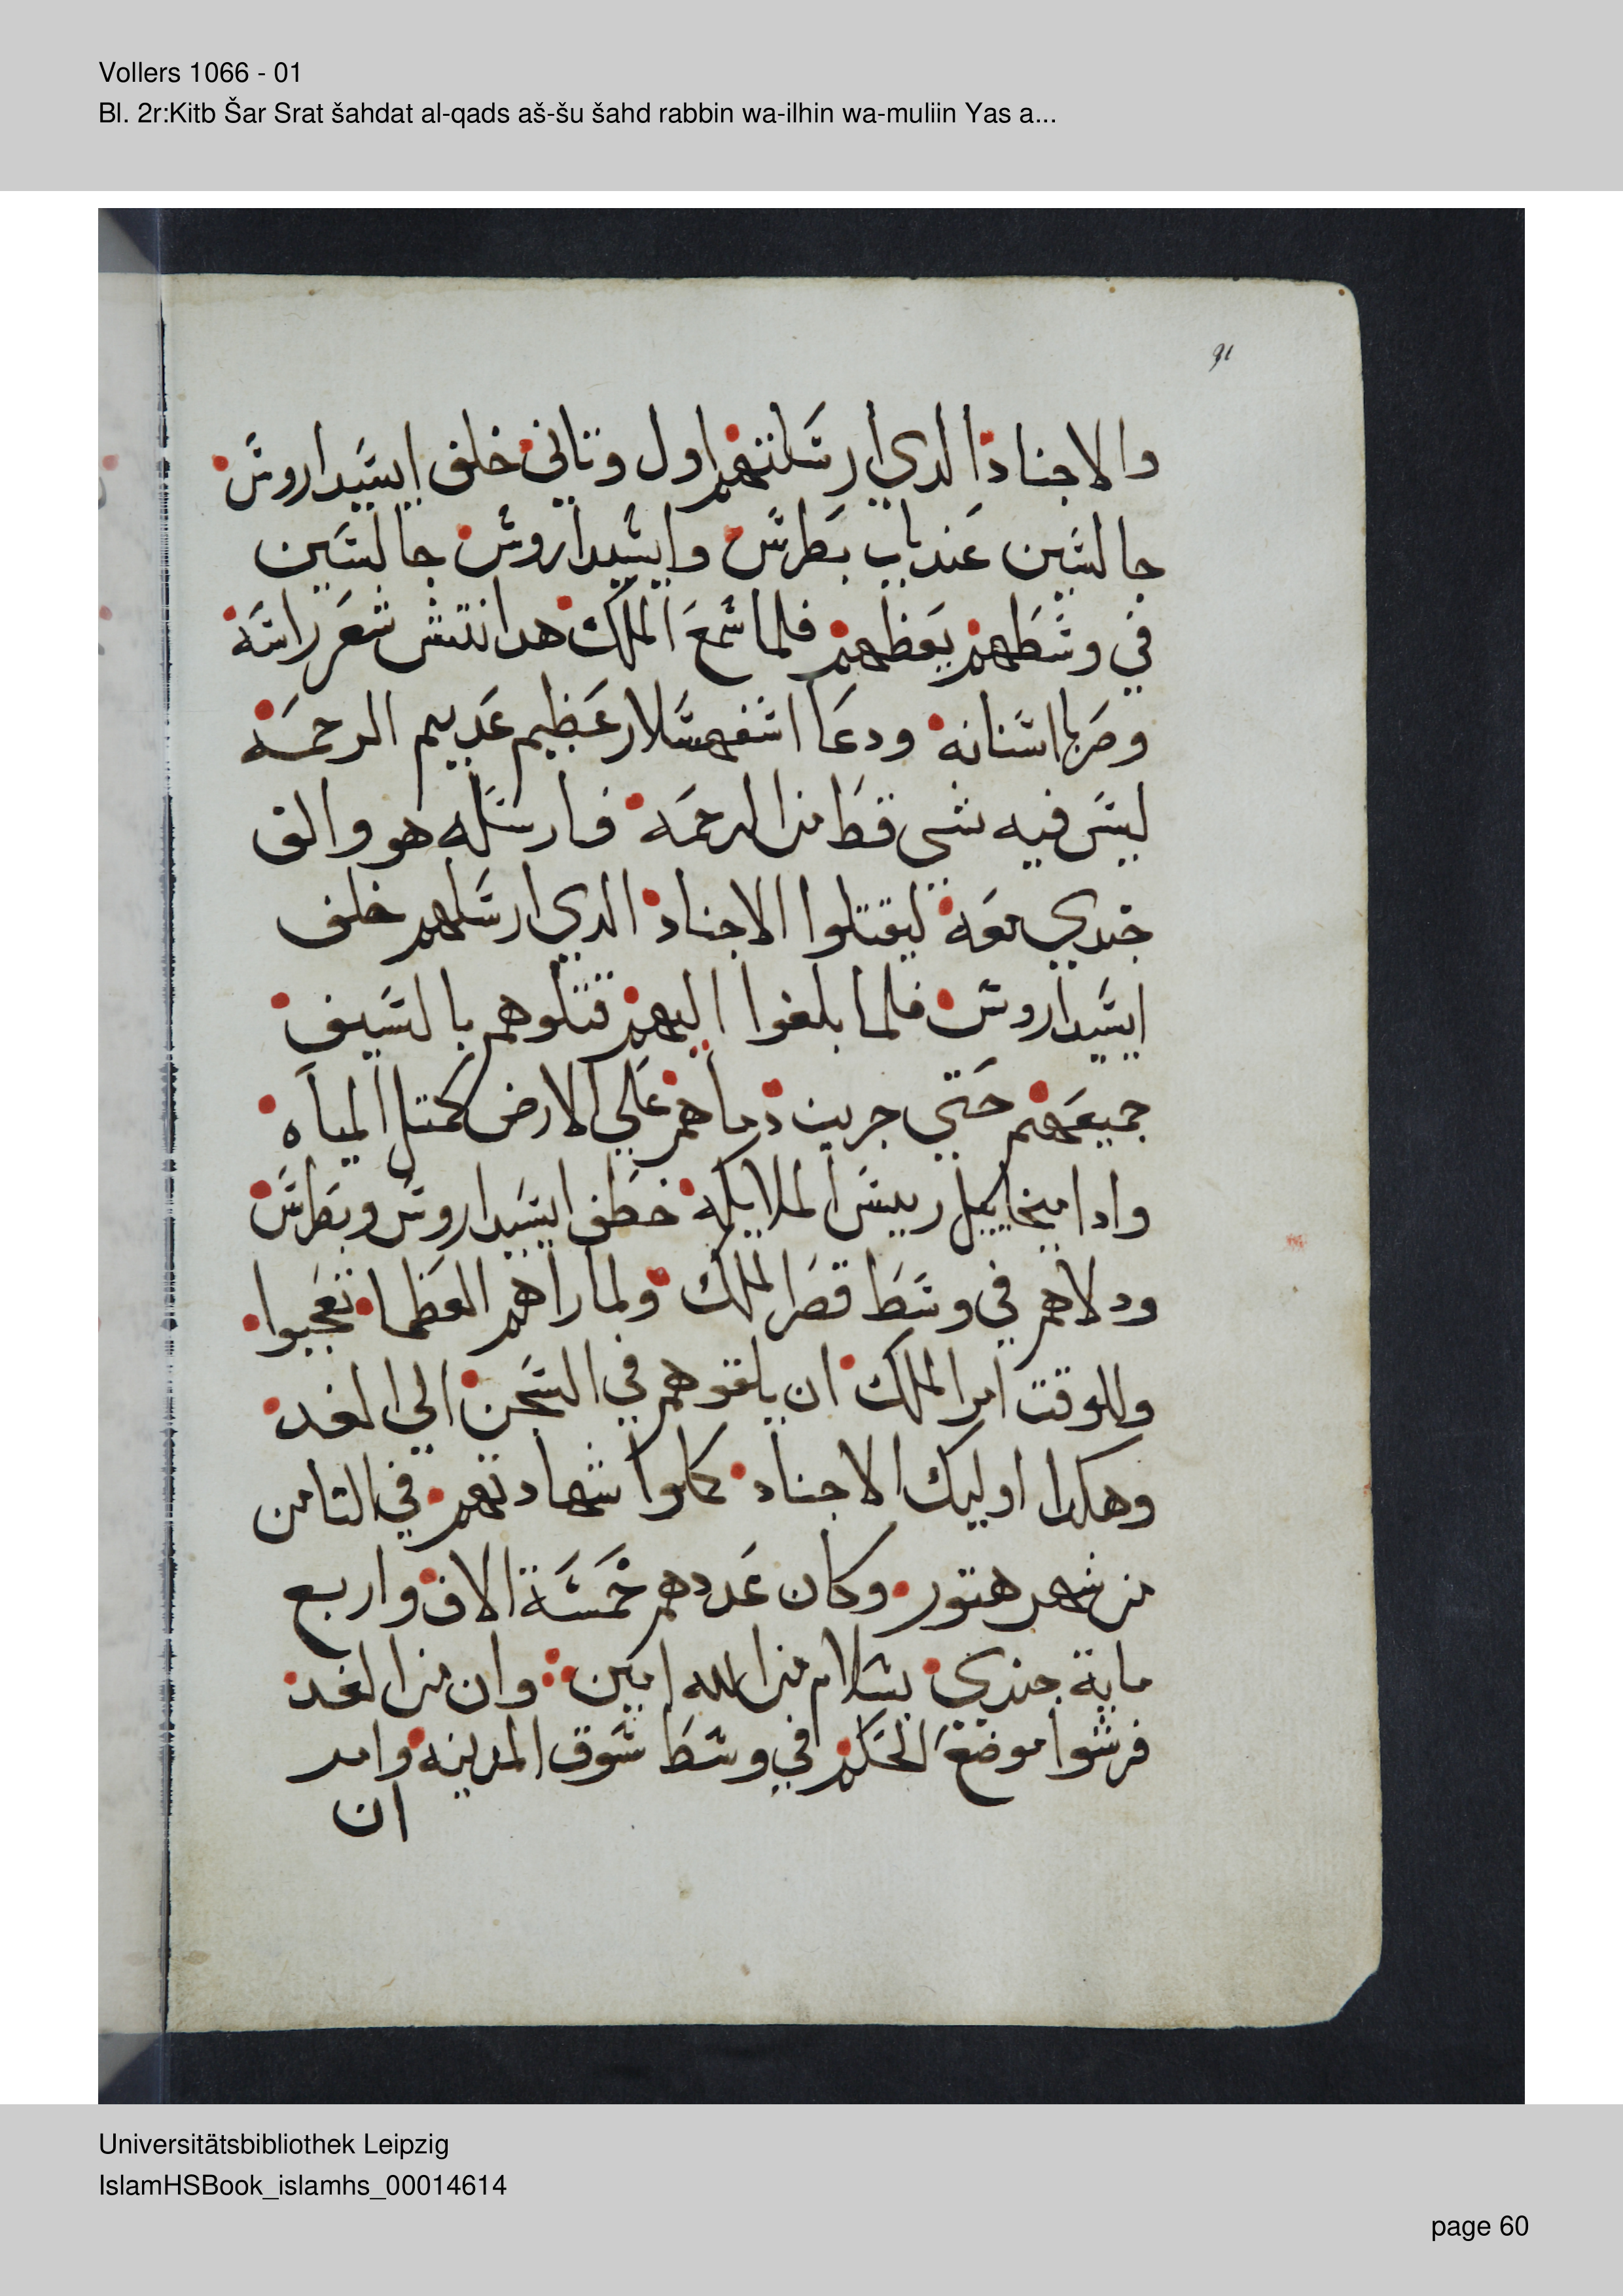 Vollers 1066 - 01
Bl. 2r:Kitb Šar Srat šahdat al-qads aš-šu šahd rabbin wa-ilhin wa-muliin Yas a...
والاجناد الدي ارسلتهم اول وتاني خلف ايسيداروس
جالسين عند باب بطرس وايسيداروس جالسين
في وسطهم يعظهم فلما سمع الملك هدا نتش شعر راسه
وصر باسنانه ودعا اسفهسلار عظيم عديم الرحمه
ليس فيه شي قط من الرحمه فارسله هو والف
جندي معه ليقتلوا الاجناد الدي ارسلهم خلف
ايسيداروس فلما بلغوا اليهم قتلوهم بالسيف
جميعهم حتي جريت دماهم علي الارض كمتل المياه
وادا ميخاييل رييس الملايكه خطف ايسيداروس وبطرس
ودلاهم في وسط قصر الملك ولما راهم العظما تعجبوا
وللوقت امر الملك ان يلقوهم في السجن الي الغد
وهكدا اوليك الاجناد كملوا شهادتهم في التامن
من شهر هتور وكان عددهم خمسة الاف واربع
ماية جندي بسلام من الله امين وان من الغد
فرشوا موضع الحكم في وسط سوق المدينه وامر
ان
Universitätsbibliothek Leipzig
IslamHSBook_islamhs_00014614
page 60